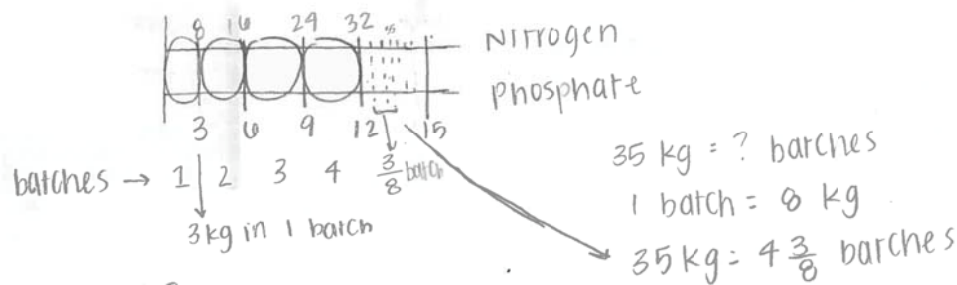 8 16 24 32 35 Nitrogen
phosphate
3 6 9 12 15
batches → 1 2 3 4 3/8 batch
3kg in 1 batch
35 kg = ? batches
1 batch = 8 kg
35 kg = 4 3/8 batches